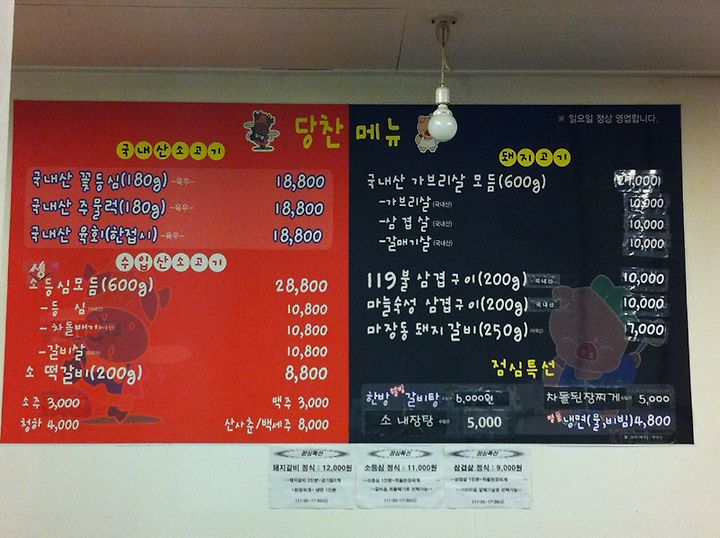 당찬 메뉴
※ 일요일 정상 영업합니다.
국내산소고기
국내산 꽃등심(180g) -육우- 18,800
국내산 주물럭(180g) -육우- 18,800
국내산 육회(한접시) -육우- 18,800
수입산소고기
생
소 등심모듬(600g) 28,800
-등 심 10,800
-차돌배기 10,800
-갈비살 10,800
소 떡갈비(200g) 8,800
소주 3,000 맥주 3,000
청하 4,000 산사춘/백세주 8,000
돼지고기
국내산 가브리살 모듬(600g)
-가브리살(국내산) 10,000
-삼겹살(국내산) 10,000
-갈매기살(국내산) 10,000
119불 삼겹구이(200g) 국내산 10,000
마늘숙성 삼겹구이(200g) 국내산 10,000
마장동 돼지갈비(250g) 7,000
점심특선
한방 갈비탕 6,000원 차돌된장찌개 5,000
소 내장탕 5,000 냉면(물,비빔) 4,800
점심특선
돼지갈비 정식 : 12,000원
(11:30~17:00시)
점심특선
소등심 정식 : 11,000원
(11:30~17:00시)
점심특선
삼겹살 정식 : 9,000원
(11:30~17:00시)